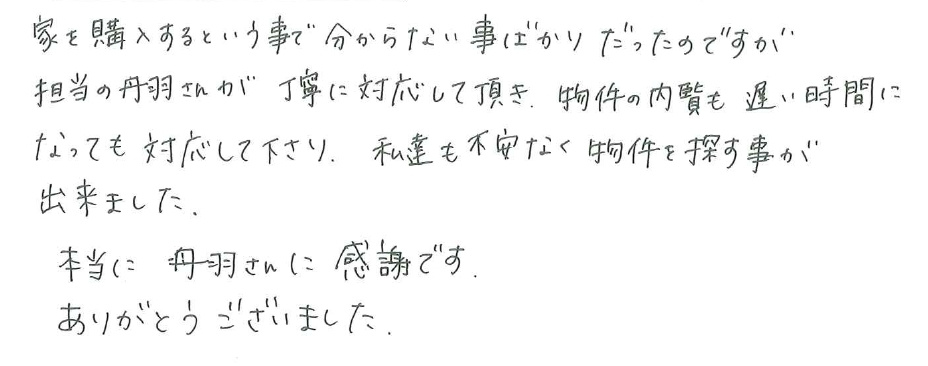 家を購入するという事で分からない事ばかりだったのですが
担当の丹羽さんが丁寧に対応して頂き、物件の内覧も遅い時間に
なっても対応して下さり、私達も不安なく物件を探す事が
出来ました。
本当に丹羽さんに感謝です。
ありがとうございました。